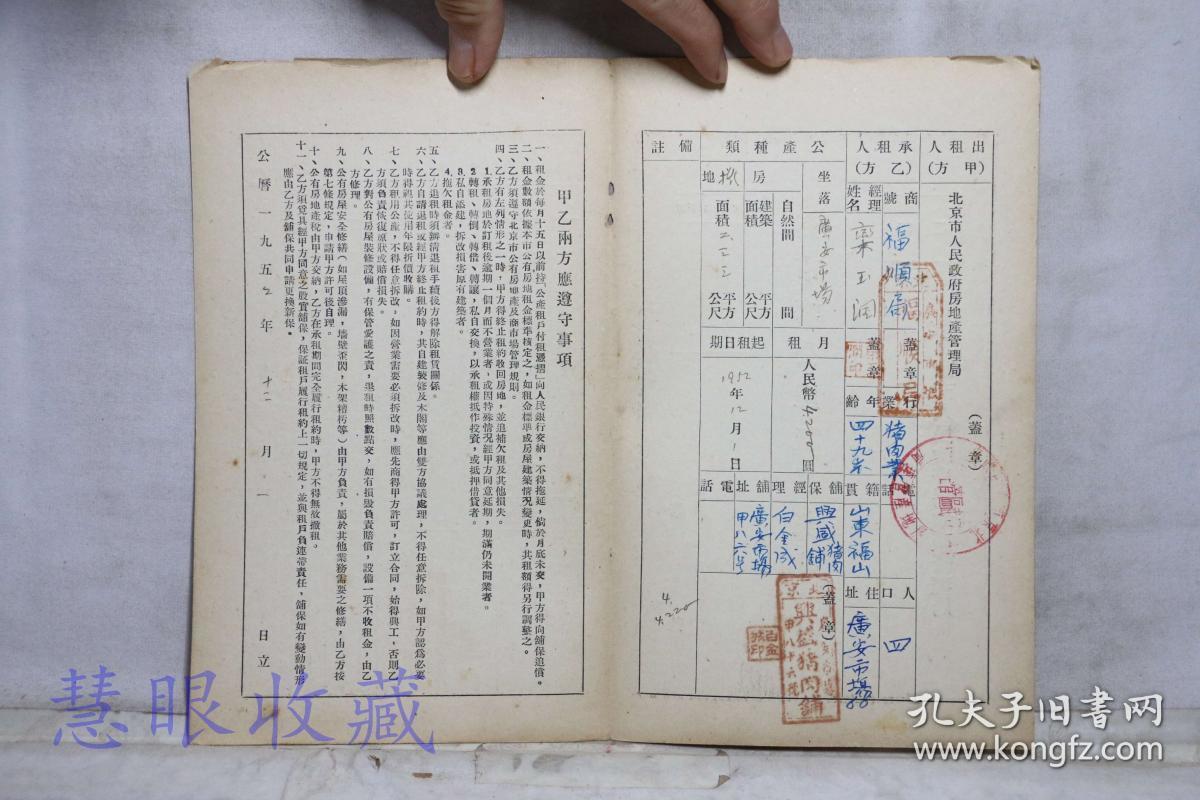 出租人（甲方）
北京市人民政府房地產管理局
（蓋章）
承租人（乙方）
商號 福順局 蓋章 行業 猪肉業 電話 人口 四
經理姓名 欒玉潤 蓋章 年齡 四十九歲 籍貫 山東福山 住址 廣安市場88
公產種類
坐落 廣安市場
自然間 間
房 建築面積 平方公尺
地 面積 二.二三 平方公尺
月租 人民幣4.200圓
起租日期 1952年12月1日
舖保 興盛猪肉舖
經理 白金成
舖址 廣安市場甲八六號
電話
（蓋章）
北京
興盛猪肉舖
備註
4.
4.220
甲乙兩方應遵守事項
一、租金於每月十五日以前持「公產租戶付租憑摺」向人民銀行交納，不得拖延，倘於月底未交，甲方得向舖保追償。
二、租金數額依據本市公有房地租金標準核定之，如租金標準或房屋建築情況變更時，其租額得另行調整之。
三、乙方須遵守北京市公有房地產及商市場管理規則。
四、乙方有左列情形之一時，甲方得終止租約收回房地，並追補欠租及其他損失。
1.承租房地於訂租後逾期一個月而不營業者，或因特殊情況經甲方同意延期，期滿仍未開業者。
2.轉租、轉倒、轉借、轉讓，私自交換，以承租權抵作投資，或抵押借貸者。
3.私自添建，拆改損害原有建築者。
4.拖欠租金者。
五、乙方退租時須辦清退租手續後方得解除租賃關係。
六、乙方自請退租或經甲方終止租約時，其自建裝修及木閣等應由雙方協議處理，不得任意拆除，如甲方認為必要
時得視其使用年限折價收購。
七、乙方租用公產，不得任意拆改，如因營業需要必須拆改時，應先商得甲方許可，訂立合同，始得興工，否則乙
方須負責恢復原狀或賠償損失。
八、乙方對公有房屋裝修設備，有保管愛護之責，退租時照數點交，如有損毀負責賠償，設備一項不收租金，由乙
方修理。
九、公有房屋安全修繕（如屋頂滲漏，墻壁歪閃，木架糟朽等）由甲方負責，屬於其他業務需要之修繕，由乙方按
第七條規定，申請甲方許可後自理。
十、公有房地產稅由甲方交納，乙方在承租期間完全履行租約時，甲方不得無故撤租。
十一、乙方須覓具經甲方同意之殷實舖保，保証租戶履行租約上一切規定，並與租戶負連帶責任，舖保如有變動情形
應由乙方及舖保共同申請更換新保。
公曆一九五二年十二月一日立
慧眼收藏
孔夫子旧书网
www.kongfz.com